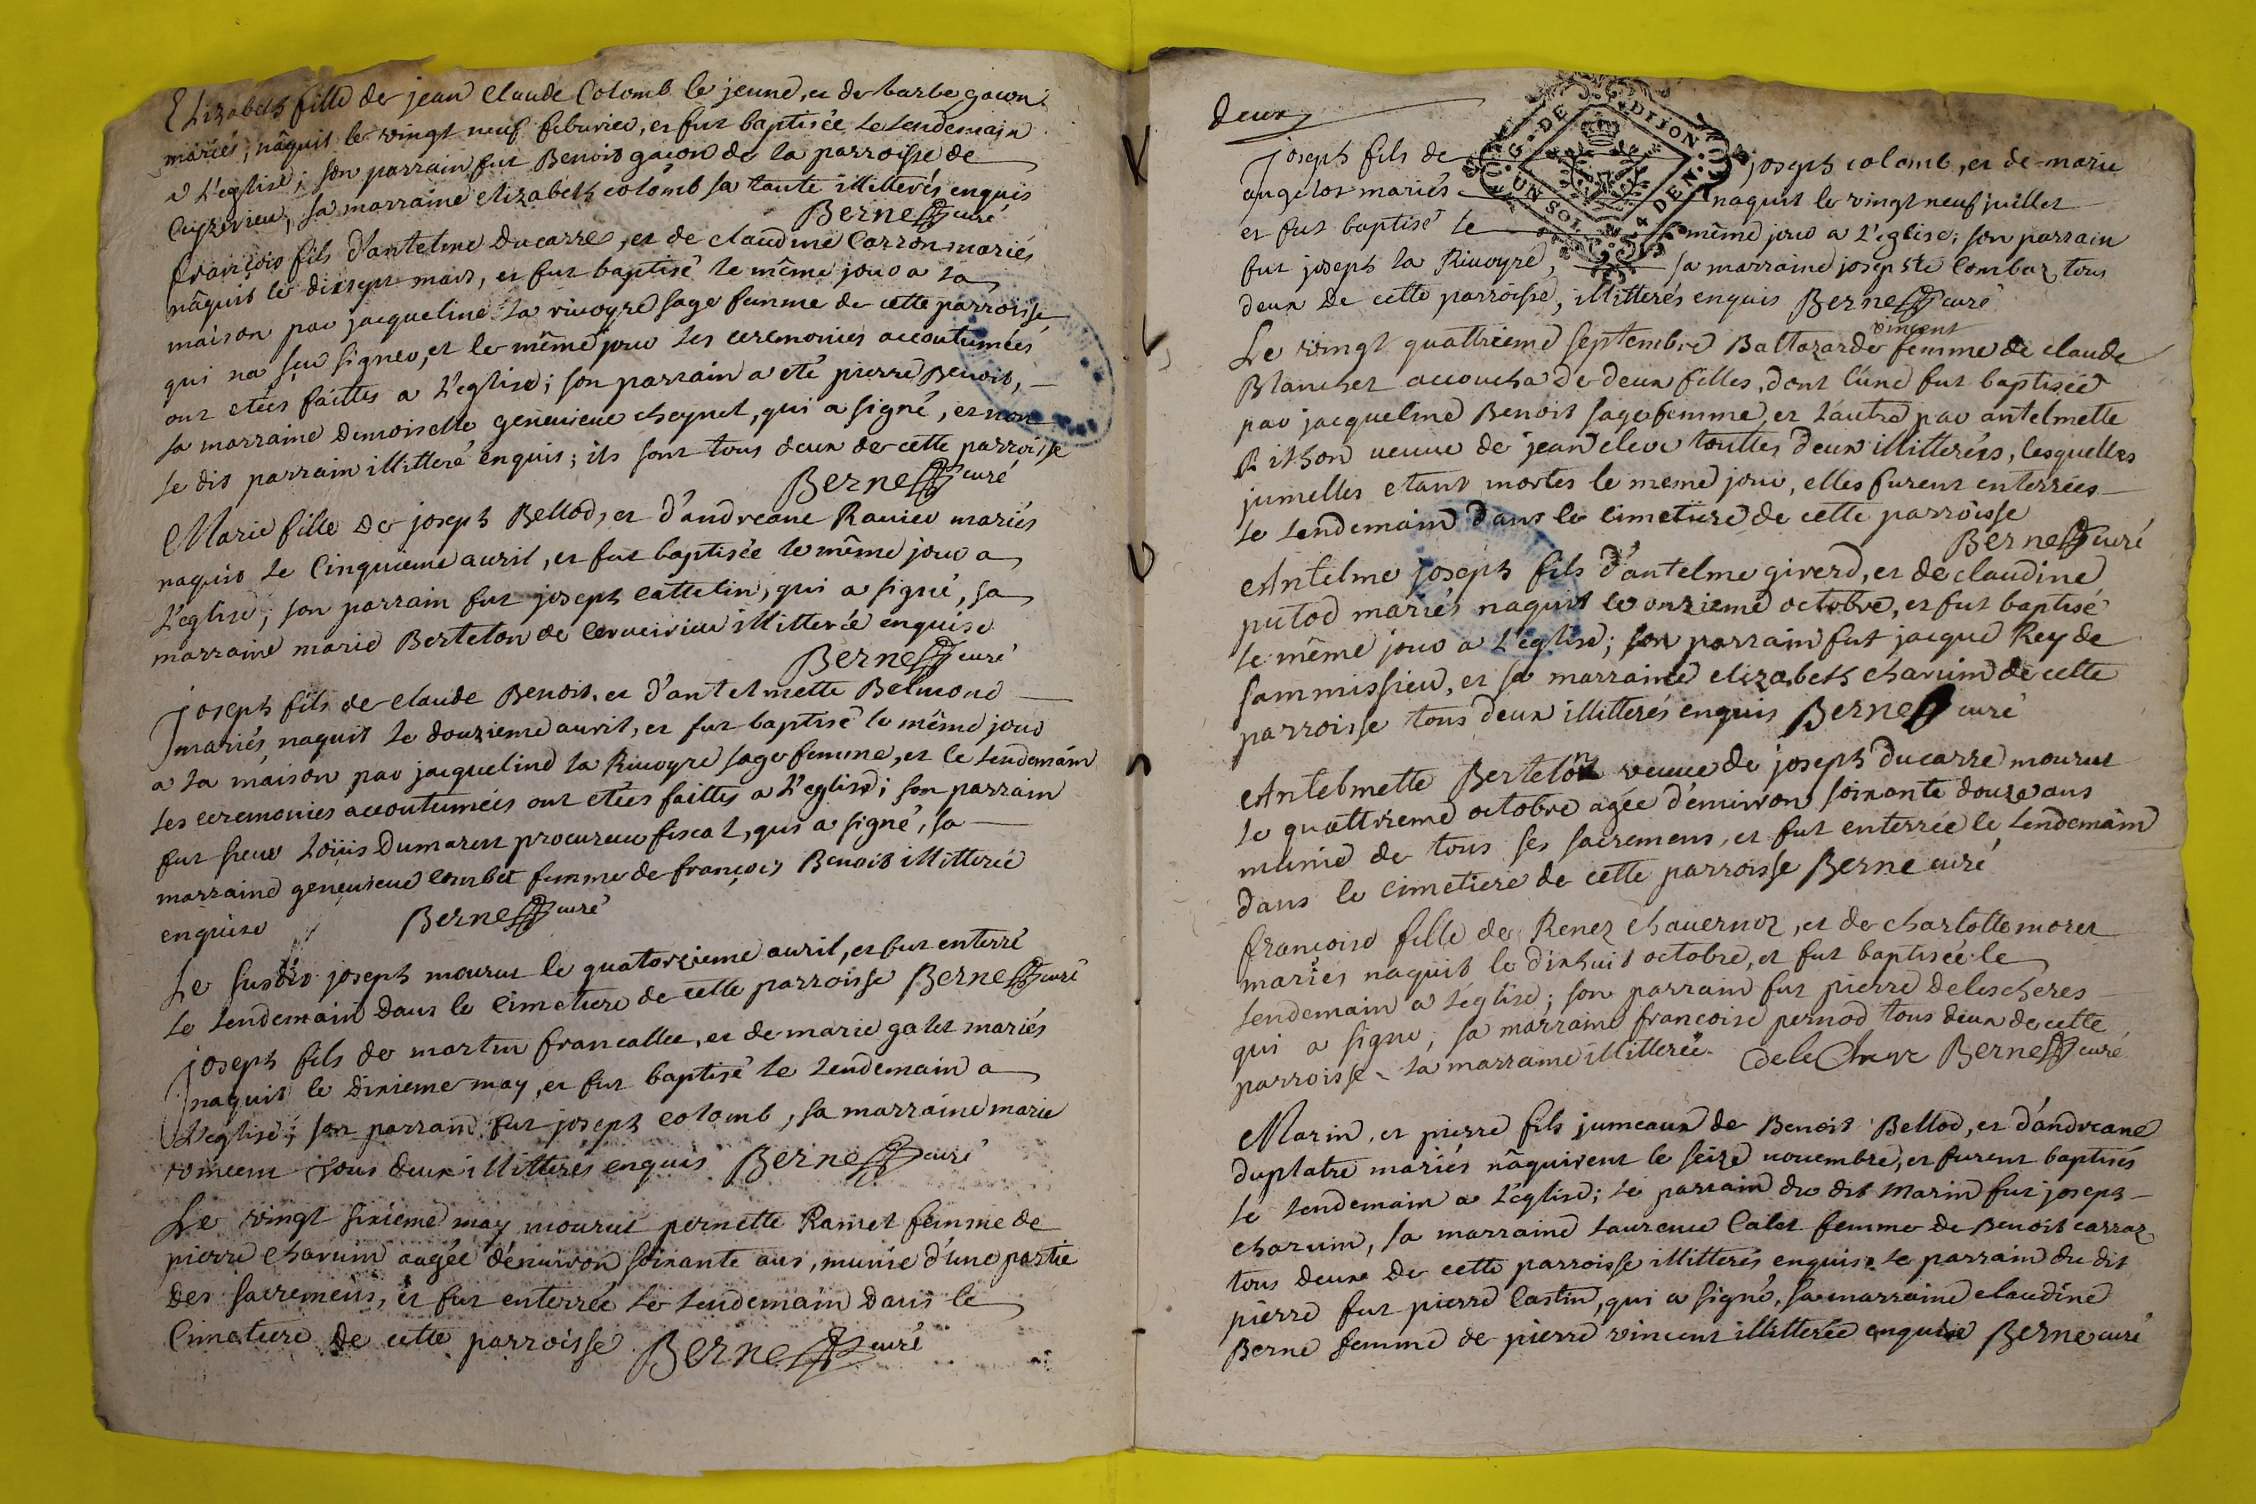 Elizabeth fille de jean claude Colomb le jeune, et de barbe gacon
mariés, nâquit le vingt neuf feburier, et fut baptisée le lendemain
a L'eglise; son parrain fut Benoit gacon de la parroisse de
Ceyzerieu, sa marraine elizabeth colomb sa tante illitterés enquis
Berne curé
François fils d'antelme Ducarre, et de claudine Carron mariés
nâquit le dixsept mars, et fut baptisé le même jour a la
maison par jacqueline la rivoyre sage femme de cette parroisse
qui na sçu signer, et le même jour les ceremonies accoutumées
ont etées faittes a L'eglise; son parrain a eté pierre Benoit,
sa marraine Demoiselle genevieve cheynet, qui a signé, et non
le dit parrain illitteré enquis; ils sont tous deux de cette parroisse
Berne curé
Marie fille de joseph Bellod, et d'andreane Ravier mariés
naquit le Cinquieme avril, et fut baptisée le même jour a
L'eglise; son parrain fut joseph cattelin, qui a signé, sa
marraine marie Berthelon de Cerveirieu illitterée enquise
Berne curé
joseph fils de claude Benoit, et d'antelmette Belmond
mariés, naquit le douzieme avril, et fut baptisé le même jour
a la maison par jacqueline la Rivoyre sage femme, et le lendemain
les ceremonies accoutumées ont etées faittes a L'eglise; son parrain
fut sieur Loüis Dumarest procureur fiscal, qui a signé, sa
marraine genevieve combet femme de françois Benoit illitterée
enquise Berne curé
Le susdit joseph mourut le quatorzieme avril, et fut enterré
le lendemain dans le cimetiere de cette parroisse Berne curé
joseph fils de martin francallet, et de marie galet mariés
naquit le dixieme may, et fut baptisé le lendemain a
L'eglise; son parrain fut joseph colomb, sa marraine marie
tous deux illitterés enquis Berne curé
Le vingt sixieme may mourut pernette Ramet femme de
pierre charvin aagée d'environ soixante ans, munie d'une partie
des sacremens, et fut enterrée le lendemain dans le
Cimetiere de cette parroisse Berne curé
deux
G. DE DIJON
UN SOL 4 DEN.
joseph fils de joseph colomb, et de marie
augelot mariés naquit le vingt neuf juillet
et fut baptisé le même jour a L'eglise; son parrain
fut joseph la Rivoyre, sa marraine josephte Combaz tous
deux de cette parroisse, illitterés enquis Berne curé
vincent
Le vingt quattrieme septembre Baltazarde femme de claude
Blanchet accoucha de deux filles, dont l'une fut baptisée
par jacqueline Benoit sage femme, et l'autre par antelmette
Rithon veuve de jean cleve touttes deux illitterées, lesquelles
jumelles etant mortes le meme jour, elles furent enterrées
le lendemain dans le cimetiere de cette parroisse
Berne curé
Antelme joseph fils d'antelme giverd, et de claudine
putod mariés naquit le onzieme octobre, et fut baptisé
le même jour a L'eglise; son parrain fut jacque Rey de
sammissieu, et sa marraine elizabeth charvin de cette
parroisse tous deux illitterés enquis Berne curé
Antelmette Bertelon veuve de joseph Ducarre mourut
le quattrieme octobre agée d'environ soixante douze ans
munie de tous ses sacremens, et fut enterrée le lendemain
dans le cimetiere de cette parroisse Berne curé
françoise fille de Renez chavernoz, et de charlotte moret
mariés naquit le dixhuit octobre, et fut baptisée le
lendemain a l'eglise; son parrain fut pierre delescheres
qui a signé, sa marraine françoise pernod tous deux de cette
parroisse la marraine illitterée. Berne curé
Marin, et pierre fils jumeaux de Benoit Bellod, et d'andreane
duplatre mariés nâquirent le seize novembre, et furent baptisés
le lendemain a L'eglise; le parrain du dit Marin fut joseph
charvin, sa marraine laurence Calet femme de Benoit carraz
tous deux de cette parroisse illitterés enquis. le parrain du dit
pierre fut pierre Castin, qui a signé, sa marraine claudine
Berne femme de pierre vincent illitterée enquise Berne curé